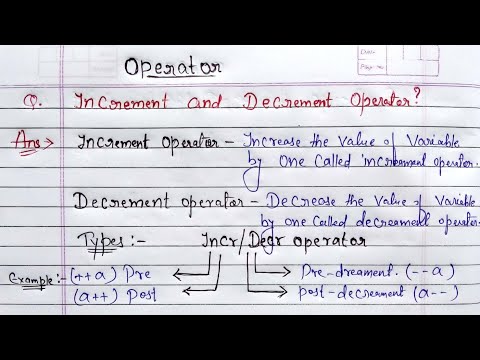 Date:
Page No:
Operator
Q. Increment and Decrement Operator?
Ans → Increment Operator - Increase the value of variable
by one called increament operator.
Decrement operator - Decrease the value of Variable
by one called decreament operator.
Types :- Incr/Degr operator
Example :- (++a) Pre Pre-dreament. (--a)
(a++) Post post-decrement (a--)